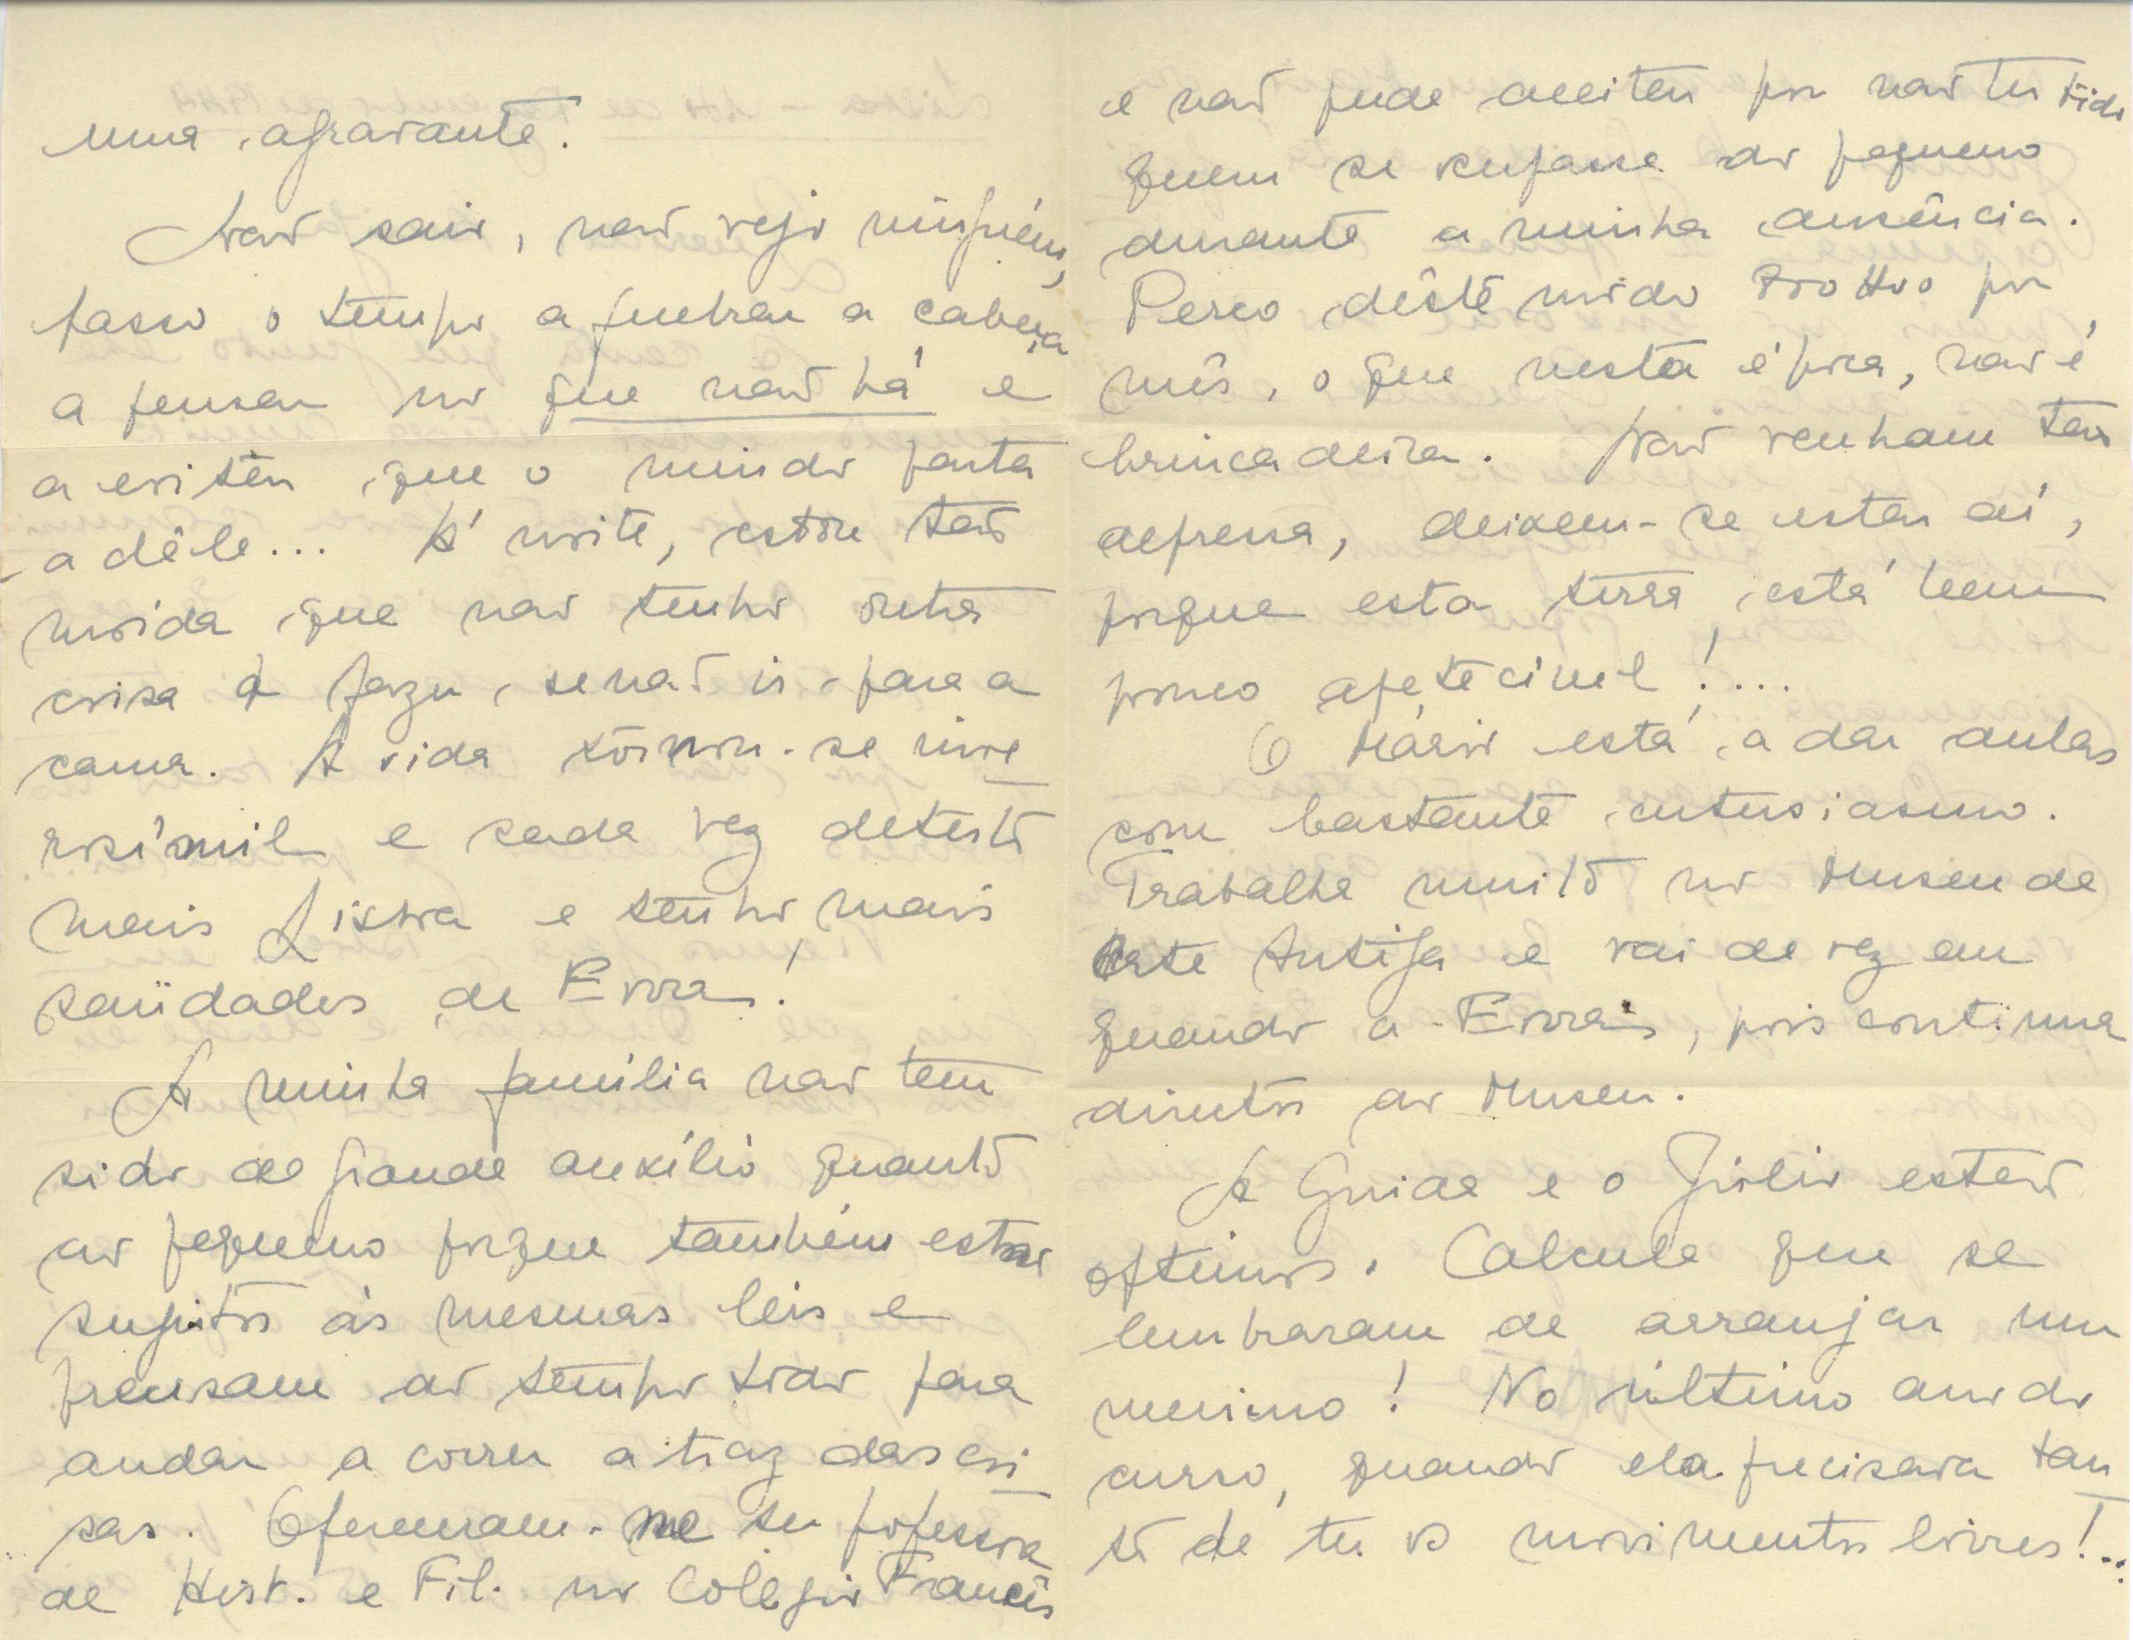 uma agravante.
Não saio, não vejo ninguém,
passo o tempo a quebrar a cabeça
a pensar no que não há e
a evitar que o miudo parta
a dêle... À noite, estou tão
moída que não tenho outra
coisa a fazer, senão ir para a
cama. A vida tornou-se inve
rosímil e cada vez detesto
mais Lisboa e tenho mais
saüdades de Evora!
A minha família não tem
sido de grande auxílio quanto
ao pequeno porque também estão
sujeitos às mesmas leis e
precisam do tempo todo para
andar a correr atraz das coi
sas. Ofereceram-me ser professora
de Hist. e Fil. no Colégio Francês
e não pude aceitar por não ter tido
quem se ocupasse do pequeno
durante a minha ausência.
Perco dêste modo 700$00 por
mês, o que nesta época, não é
brincadeira. Não venham tão
depressa, deixem-se estar aí,
porque esta terra está bem
pouco apetecível!...
O Mário está a dar aulas
com bastante entusiasmo.
Trabalha muito no Museu de
Arte Antiga e vai de vez em
quando a Evora, pois continua
director do Museu.
A Guida e o Júlio estão
óptimos. Calcule que se
lembraram de arranjar um
menino! No último ano do
curso, quando ela precisava tan
to de ter os movimentos livres!...